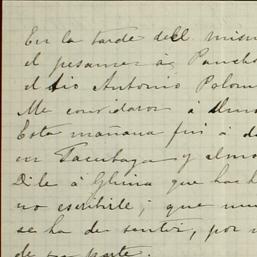 En la tarde del mism
el pesame á Pancho
el tio Antonio Palom
Me convidaron á
Esta mañana fuí á d
en Tacubaya y almo
Dile á que hac
no escribile, que
se ha de sentir, por
de parte.